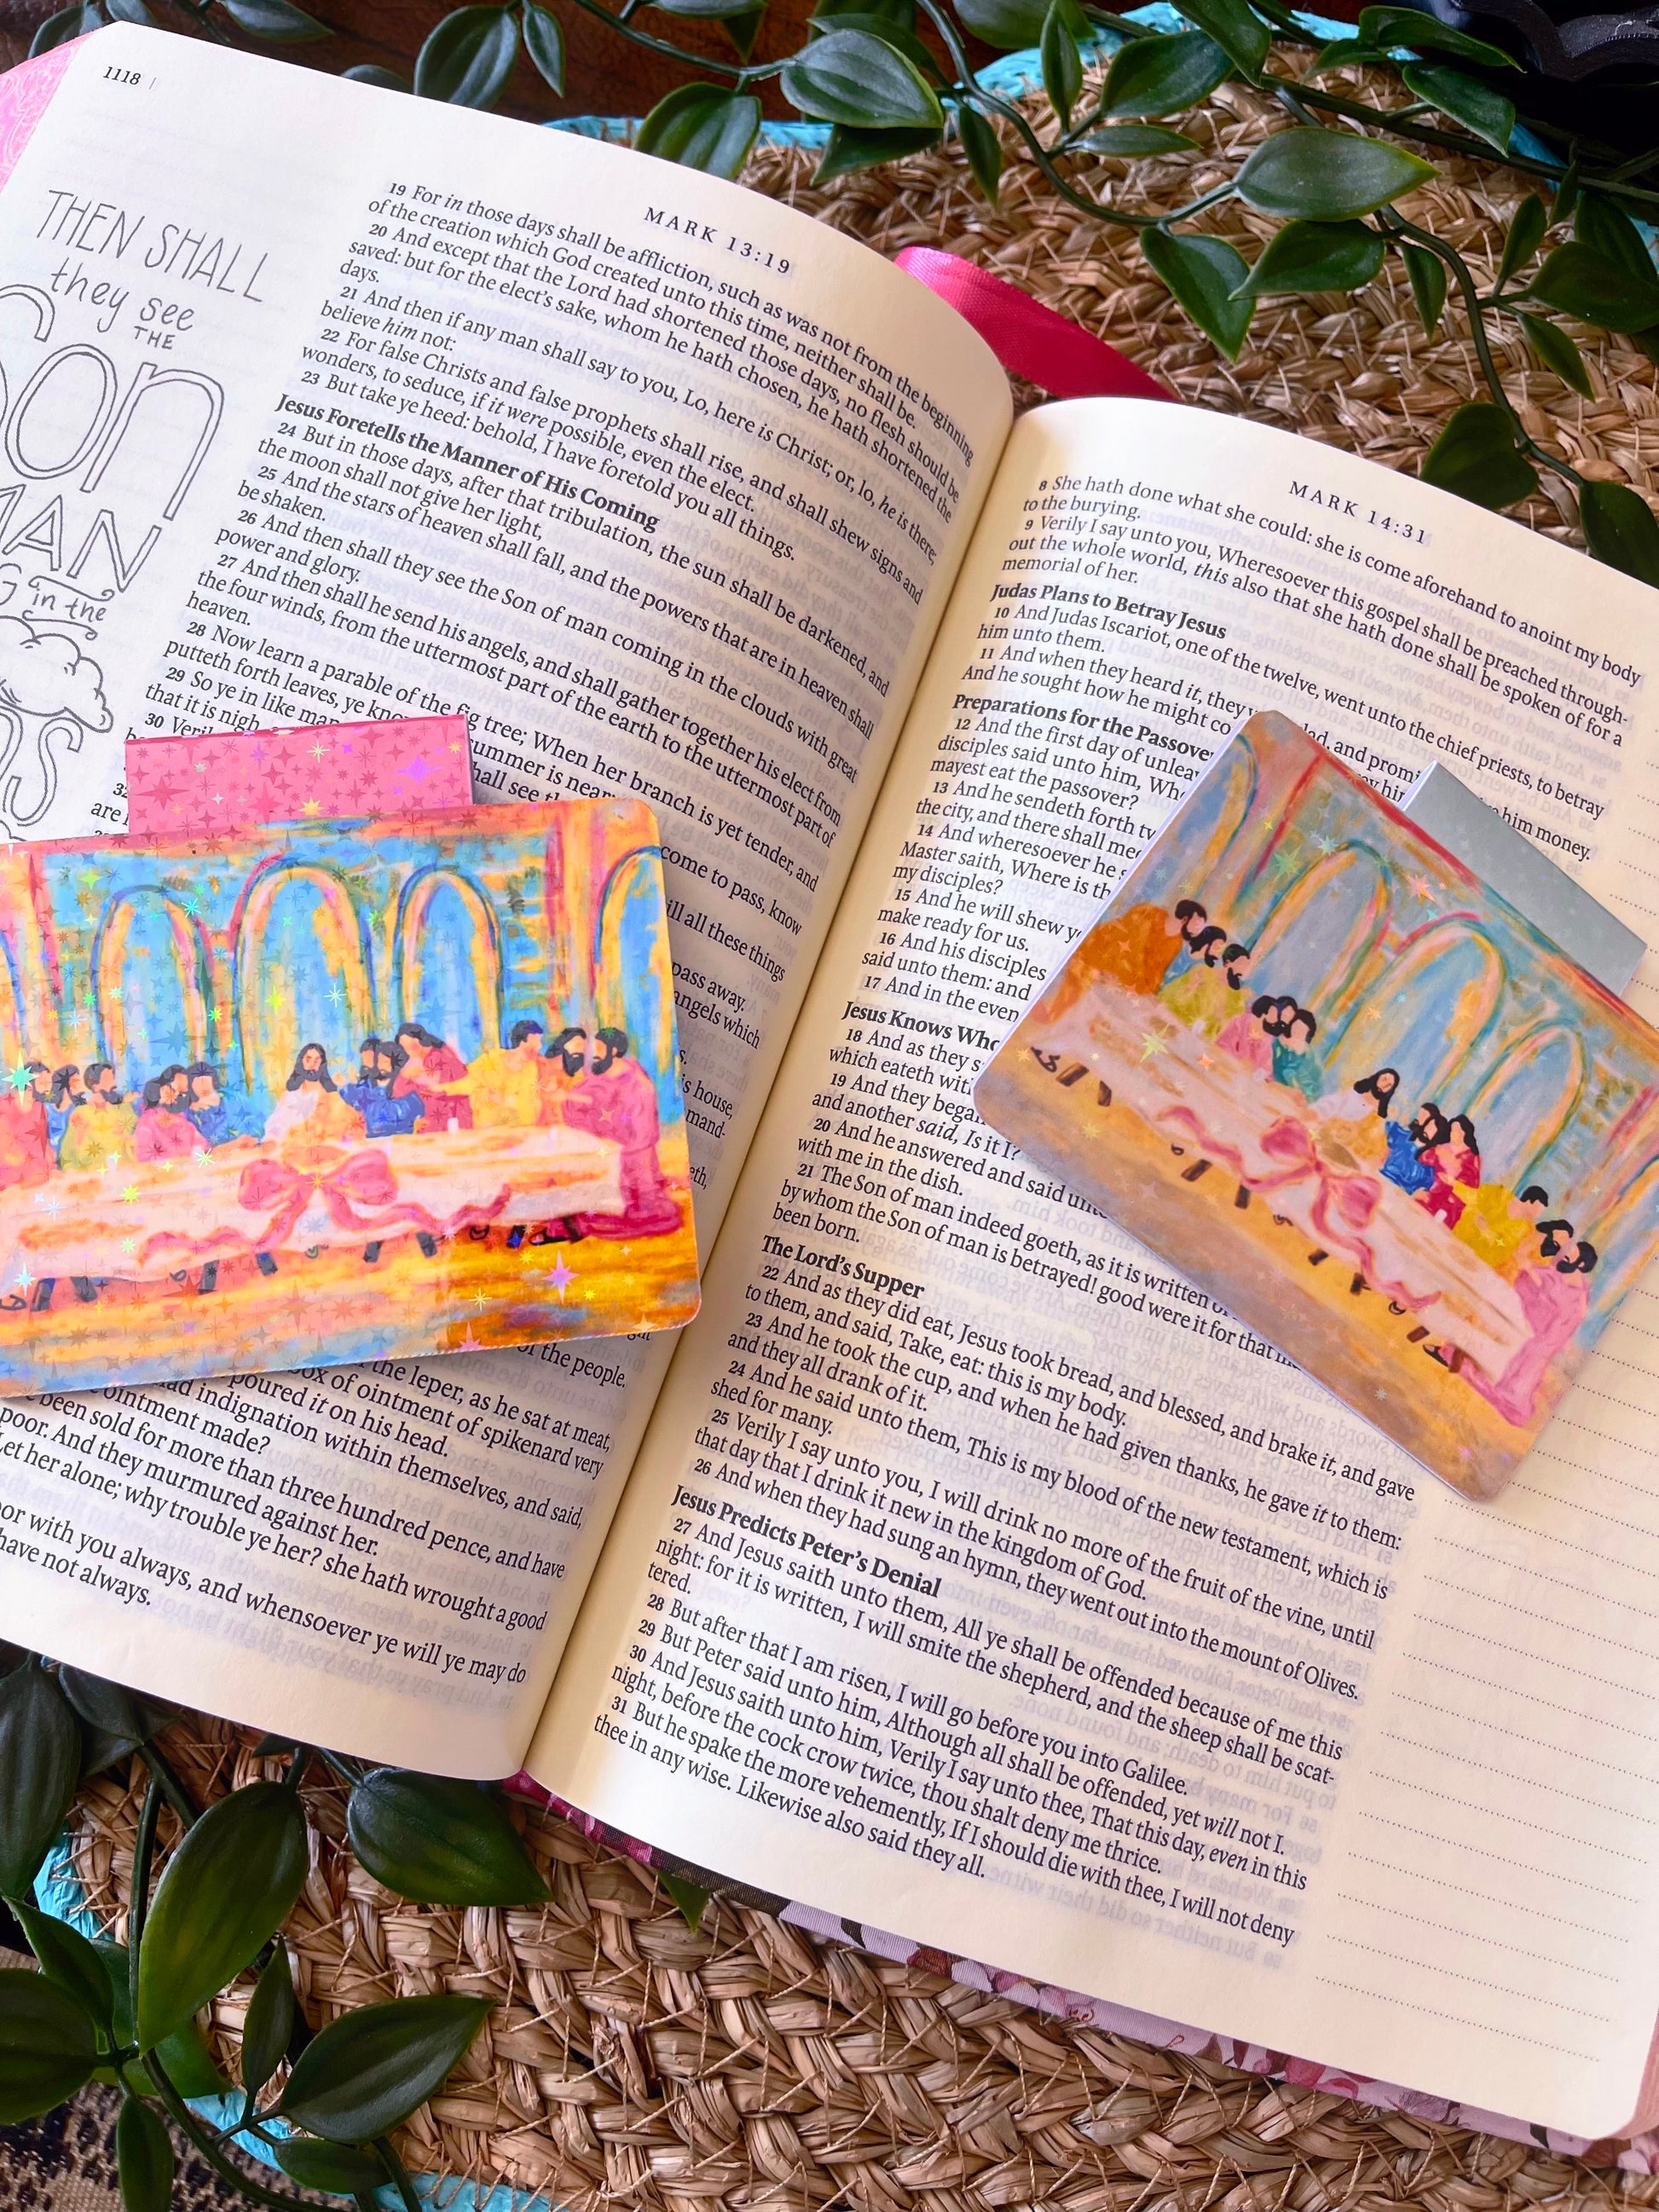 1118 |
THEN SHALL
they see
THE
Son
MAN
in the
MARK 13:19
19 For in those days shall be affliction, such as was not from the beginning
of the creation which God created unto this time, neither shall be.
20 And except that the Lord had shortened those days, no flesh should be
saved: but for the elect's sake, whom he hath chosen, he hath shortened the
days.
21 And then if any man shall say to you, Lo, here is Christ; or, lo, he is there;
believe him not:
22 For false Christs and false prophets shall rise, and shall shew signs and
wonders, to seduce, if it were possible, even the elect.
23 But take ye heed: behold, I have foretold you all things.
Jesus Foretells the Manner of His Coming
24 But in those days, after that tribulation, the sun shall be darkened, and
the moon shall not give her light,
25 And the stars of heaven shall fall, and the powers that are in heaven shall
be shaken.
26 And then shall they see the Son of man coming in the clouds with great
power and glory.
27 And then shall he send his angels, and shall gather together his elect from
the four winds, from the uttermost part of the earth to the uttermost part of
heaven.
28 Now learn a parable of the fig tree; When her branch is yet tender, and
putteth forth leaves, ye summer is near
29 So ye in like shall see come to pass, know
that it is nigh
30 ill all these things
pass away.
are angels which
is house,
mand-
of the people.
the leper, as he sat at meat,
of ointment of spikenard very
poured it on his head.
indignation within themselves, and said,
ointment made?
been sold for more than three hundred pence, and have
poor. And they murmured against her.
Let her alone; why trouble ye her? she hath wrought a good
with you always, and whensoever ye will ye may do
have not always.
MARK 14:31
8 She hath done what she could: she is come aforehand to anoint my body
to the burying.
9 Verily I say unto you, Wheresoever this gospel shall be preached through-
out the whole world, this also that she hath done shall be spoken of for a
memorial of her.
Judas Plans to Betray Jesus
10 And Judas Iscariot, one of the twelve, went unto the chief priests, to betray
him unto them.
11 And when they heard it, they and him money.
And he sought how he might
Preparations for the Passover
12 And the first day of
disciples said unto him,
mayest eat the passover?
13 And he sendeth forth
the city, and there shall
14 And wheresoever he
Master saith, Where is
my disciples?
15 And he will shew
make ready for us.
16 And his disciples
said unto them: and
17 And in the even
Jesus Knows
18 And as they
which eateth
19 And they
and another said, Is it I?
20 And he answered and said
with me in the dish.
21 The Son of man indeed goeth, as it is written
by whom the Son of man is betrayed! good were it for that
been born.
The Lord's Supper
22 And as they did eat, Jesus took bread, and blessed, and brake it, and gave
to them, and said, Take, eat: this is my body.
23 And he took the cup, and when he had given thanks, he gave it to them:
and they all drank of it.
24 And he said unto them, This is my blood of the new testament, which is
shed for many.
25 Verily I say unto you, I will drink no more of the fruit of the vine, until
that day that I drink it new in the kingdom of God.
26 And when they had sung an hymn, they went out into the mount of Olives.
Jesus Predicts Peter's Denial
27 And Jesus saith unto them, All ye shall be offended because of me this
night: for it is written, I will smite the shepherd, and the sheep shall be scat-
tered.
28 But after that I am risen, I will go before you into Galilee.
29 But Peter said unto him, Although all shall be offended, yet will not I.
30 And Jesus saith unto him, Verily I say unto thee, That this day, even in this
night, before the cock crow twice, thou shalt deny me thrice.
31 But he spake the more vehemently, If I should die with thee, I will not deny
thee in any wise. Likewise also said they all.